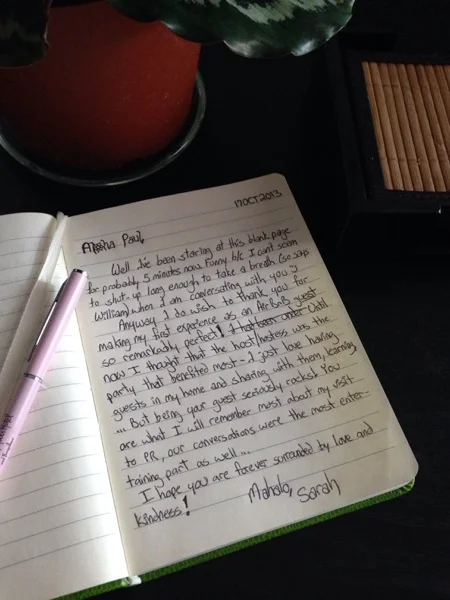 17OCT2013
Paul,
Well I've been staring at this blank page
for probably 5 minutes now. Funny b/c I can't seem
to shut-up long enough to take a breath (so says
William) when I am conversating with you
Anyway, I do wish to thank you for
making my first experience as an AirBnB guest
so remarkably perfect! I had been under Until
now I thought that the host/hostess was the
party that benefited most - I just love having
guests in my home and sharing with them, learning
... But being your guest seriously rocks! You
are what I will remember most about my visit
to PR, our conversations were the most enter-
taining part as well...
I hope you are forever surrounded by love and
kindness!
Mahalo, Sarah